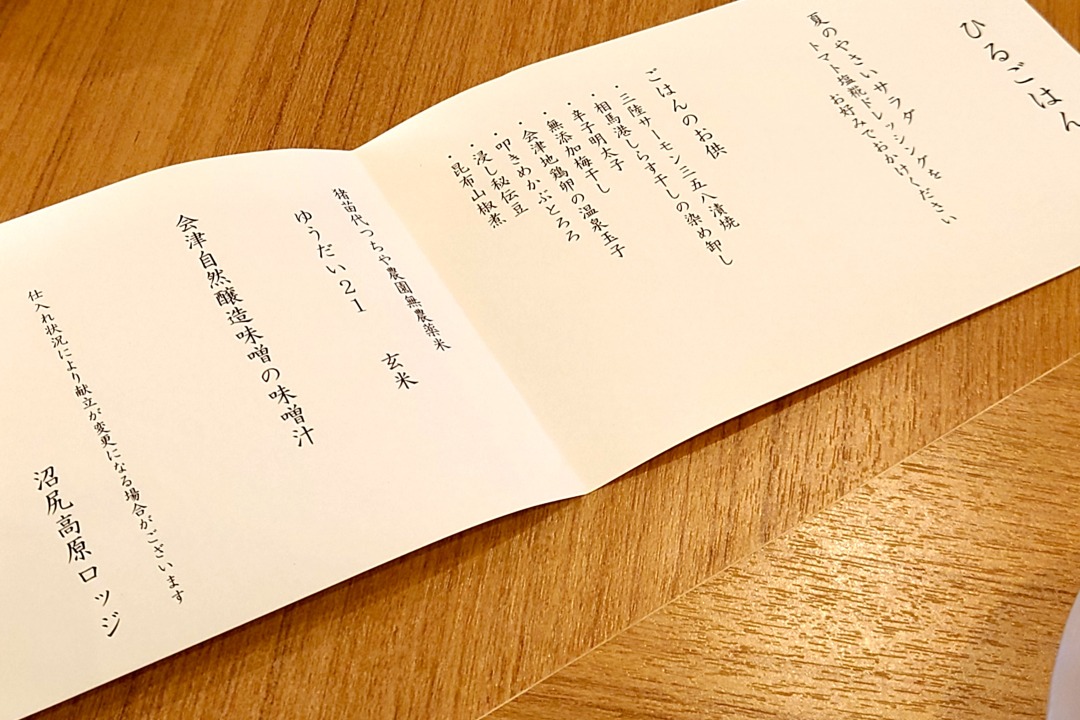 ひるごはん
夏のやさいサラダ
トマト塩糀ドレッシングを
お好みでおかけください
ごはんのお供
・三陸サーモン三五八漬焼
・相馬港しらす干しの染め卸し
・辛子明太子
・無添加梅干し
・会津地鶏卵の温泉玉子
・叩きめかぶとろろ
・浸し秘伝豆
・昆布山椒煮
猪苗代つちや農園無農薬米
ゆうだい21　玄米
会津自然醸造味噌の味噌汁
仕入れ状況により献立が変更になる場合がございます
沼尻高原ロッジ